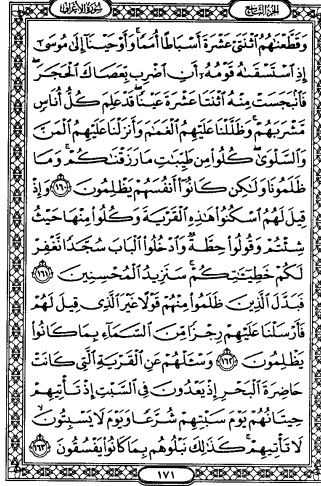 سورة الأعراف الجزء التاسع
وَقَطَّعْنَٰهُمُ ٱثْنَتَىْ عَشْرَةَ أَسْبَاطًا أُمَمًا ۚ وَأَوْحَيْنَآ إِلَىٰ مُوسَىٰٓ
إِذِ ٱسْتَسْقَىٰهُ قَوْمُهُۥٓ أَنِ ٱضْرِب بِّعَصَاكَ ٱلْحَجَرَ ۖ
فَٱنۢبَجَسَتْ مِنْهُ ٱثْنَتَا عَشْرَةَ عَيْنًا ۖ قَدْ عَلِمَ كُلُّ أُنَاسٍ
مَّشْرَبَهُمْ ۚ وَظَلَّلْنَا عَلَيْهِمُ ٱلْغَمَٰمَ وَأَنزَلْنَا عَلَيْهِمُ ٱلْمَنَّ
وَٱلسَّلْوَىٰ ۖ كُلُوا۟ مِن طَيِّبَٰتِ مَا رَزَقْنَٰكُمْ ۚ وَمَا
ظَلَمُونَا وَلَٰكِن كَانُوٓا۟ أَنفُسَهُمْ يَظْلِمُونَ ١٦٠ وَإِذْ
قِيلَ لَهُمُ ٱسْكُنُوا۟ هَٰذِهِ ٱلْقَرْيَةَ وَكُلُوا۟ مِنْهَا حَيْثُ
شِئْتُمْ وَقُولُوا۟ حِطَّةٌ وَٱدْخُلُوا۟ ٱلْبَابَ سُجَّدًا نَّغْفِرْ
لَكُمْ خَطِيٓـَٰٔتِكُمْ ۚ سَنَزِيدُ ٱلْمُحْسِنِينَ ١٦١
فَبَدَّلَ ٱلَّذِينَ ظَلَمُوا۟ مِنْهُمْ قَوْلًا غَيْرَ ٱلَّذِى قِيلَ لَهُمْ
فَأَرْسَلْنَا عَلَيْهِمْ رِجْزًا مِّنَ ٱلسَّمَآءِ بِمَا كَانُوا۟
يَظْلِمُونَ ١٦٢ وَسْـَٔلْهُمْ عَنِ ٱلْقَرْيَةِ ٱلَّتِى كَانَتْ
حَاضِرَةَ ٱلْبَحْرِ إِذْ يَعْدُونَ فِى ٱلسَّبْتِ إِذْ تَأْتِيهِمْ
حِيتَانُهُمْ يَوْمَ سَبْتِهِمْ شُرَّعًا وَيَوْمَ لَا يَسْبِتُونَ ۙ
لَا تَأْتِيهِمْ ۚ كَذَٰلِكَ نَبْلُوهُم بِمَا كَانُوا۟ يَفْسُقُونَ ١٦٣
١٧١